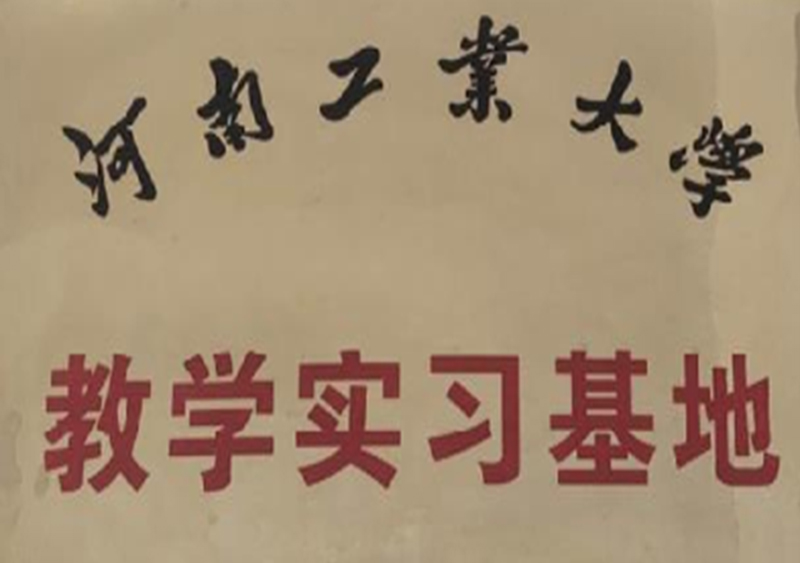 河南工業大學
教学实习基地